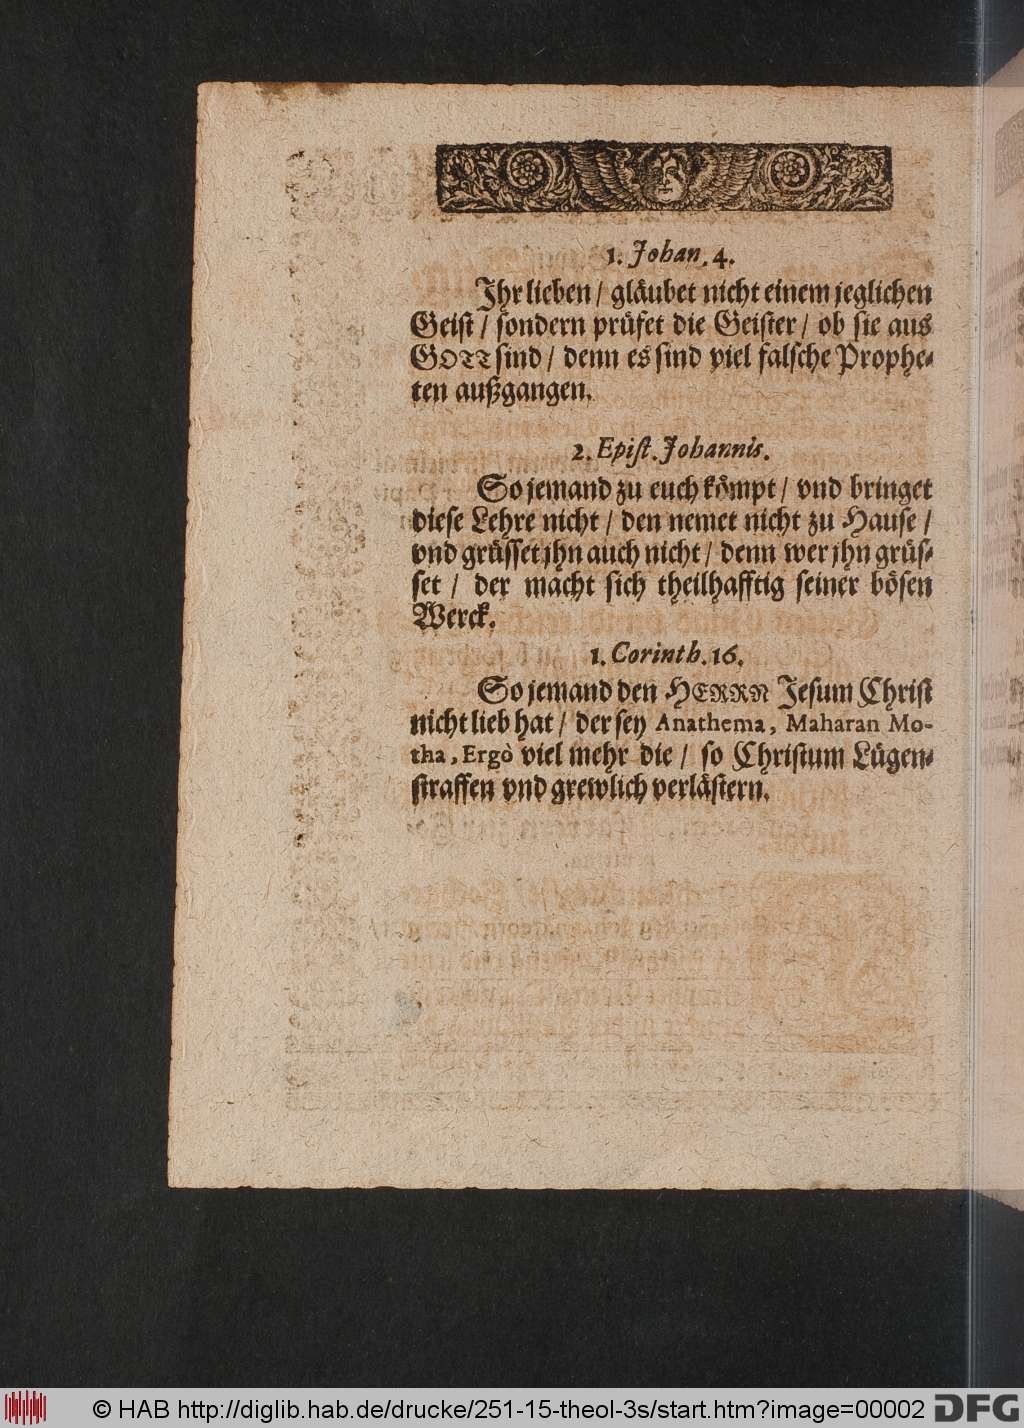 1. Johan. 4.
Ihr lieben / gläubet nicht einem jeglichen
Geist / sondern prüfet die Geister / ob sie aus
GOTT sind / denn es sind viel falsche Prophe-
ten außgangen.
2. Epist. Johannis.
So jemand zu euch kömpt / vnd bringet
diese Lehre nicht / den nemet nicht zu Hause /
vnd grüsset jhn auch nicht / denn wer jhn grüs-
set / der macht sich theilhafftig seiner bösen
Werck.
1. Corinth. 16.
So jemand den HERRN Jesum Christ
nicht lieb hat / der sey Anathema, Maharan Mo-
tha, Ergò viel mehr die / so Christum Lügen-
straffen vnd grewlich verlästern.
© HAB http://diglib.hab.de/drucke/251-15-theol-3s/start.htm?image=00002
DFG